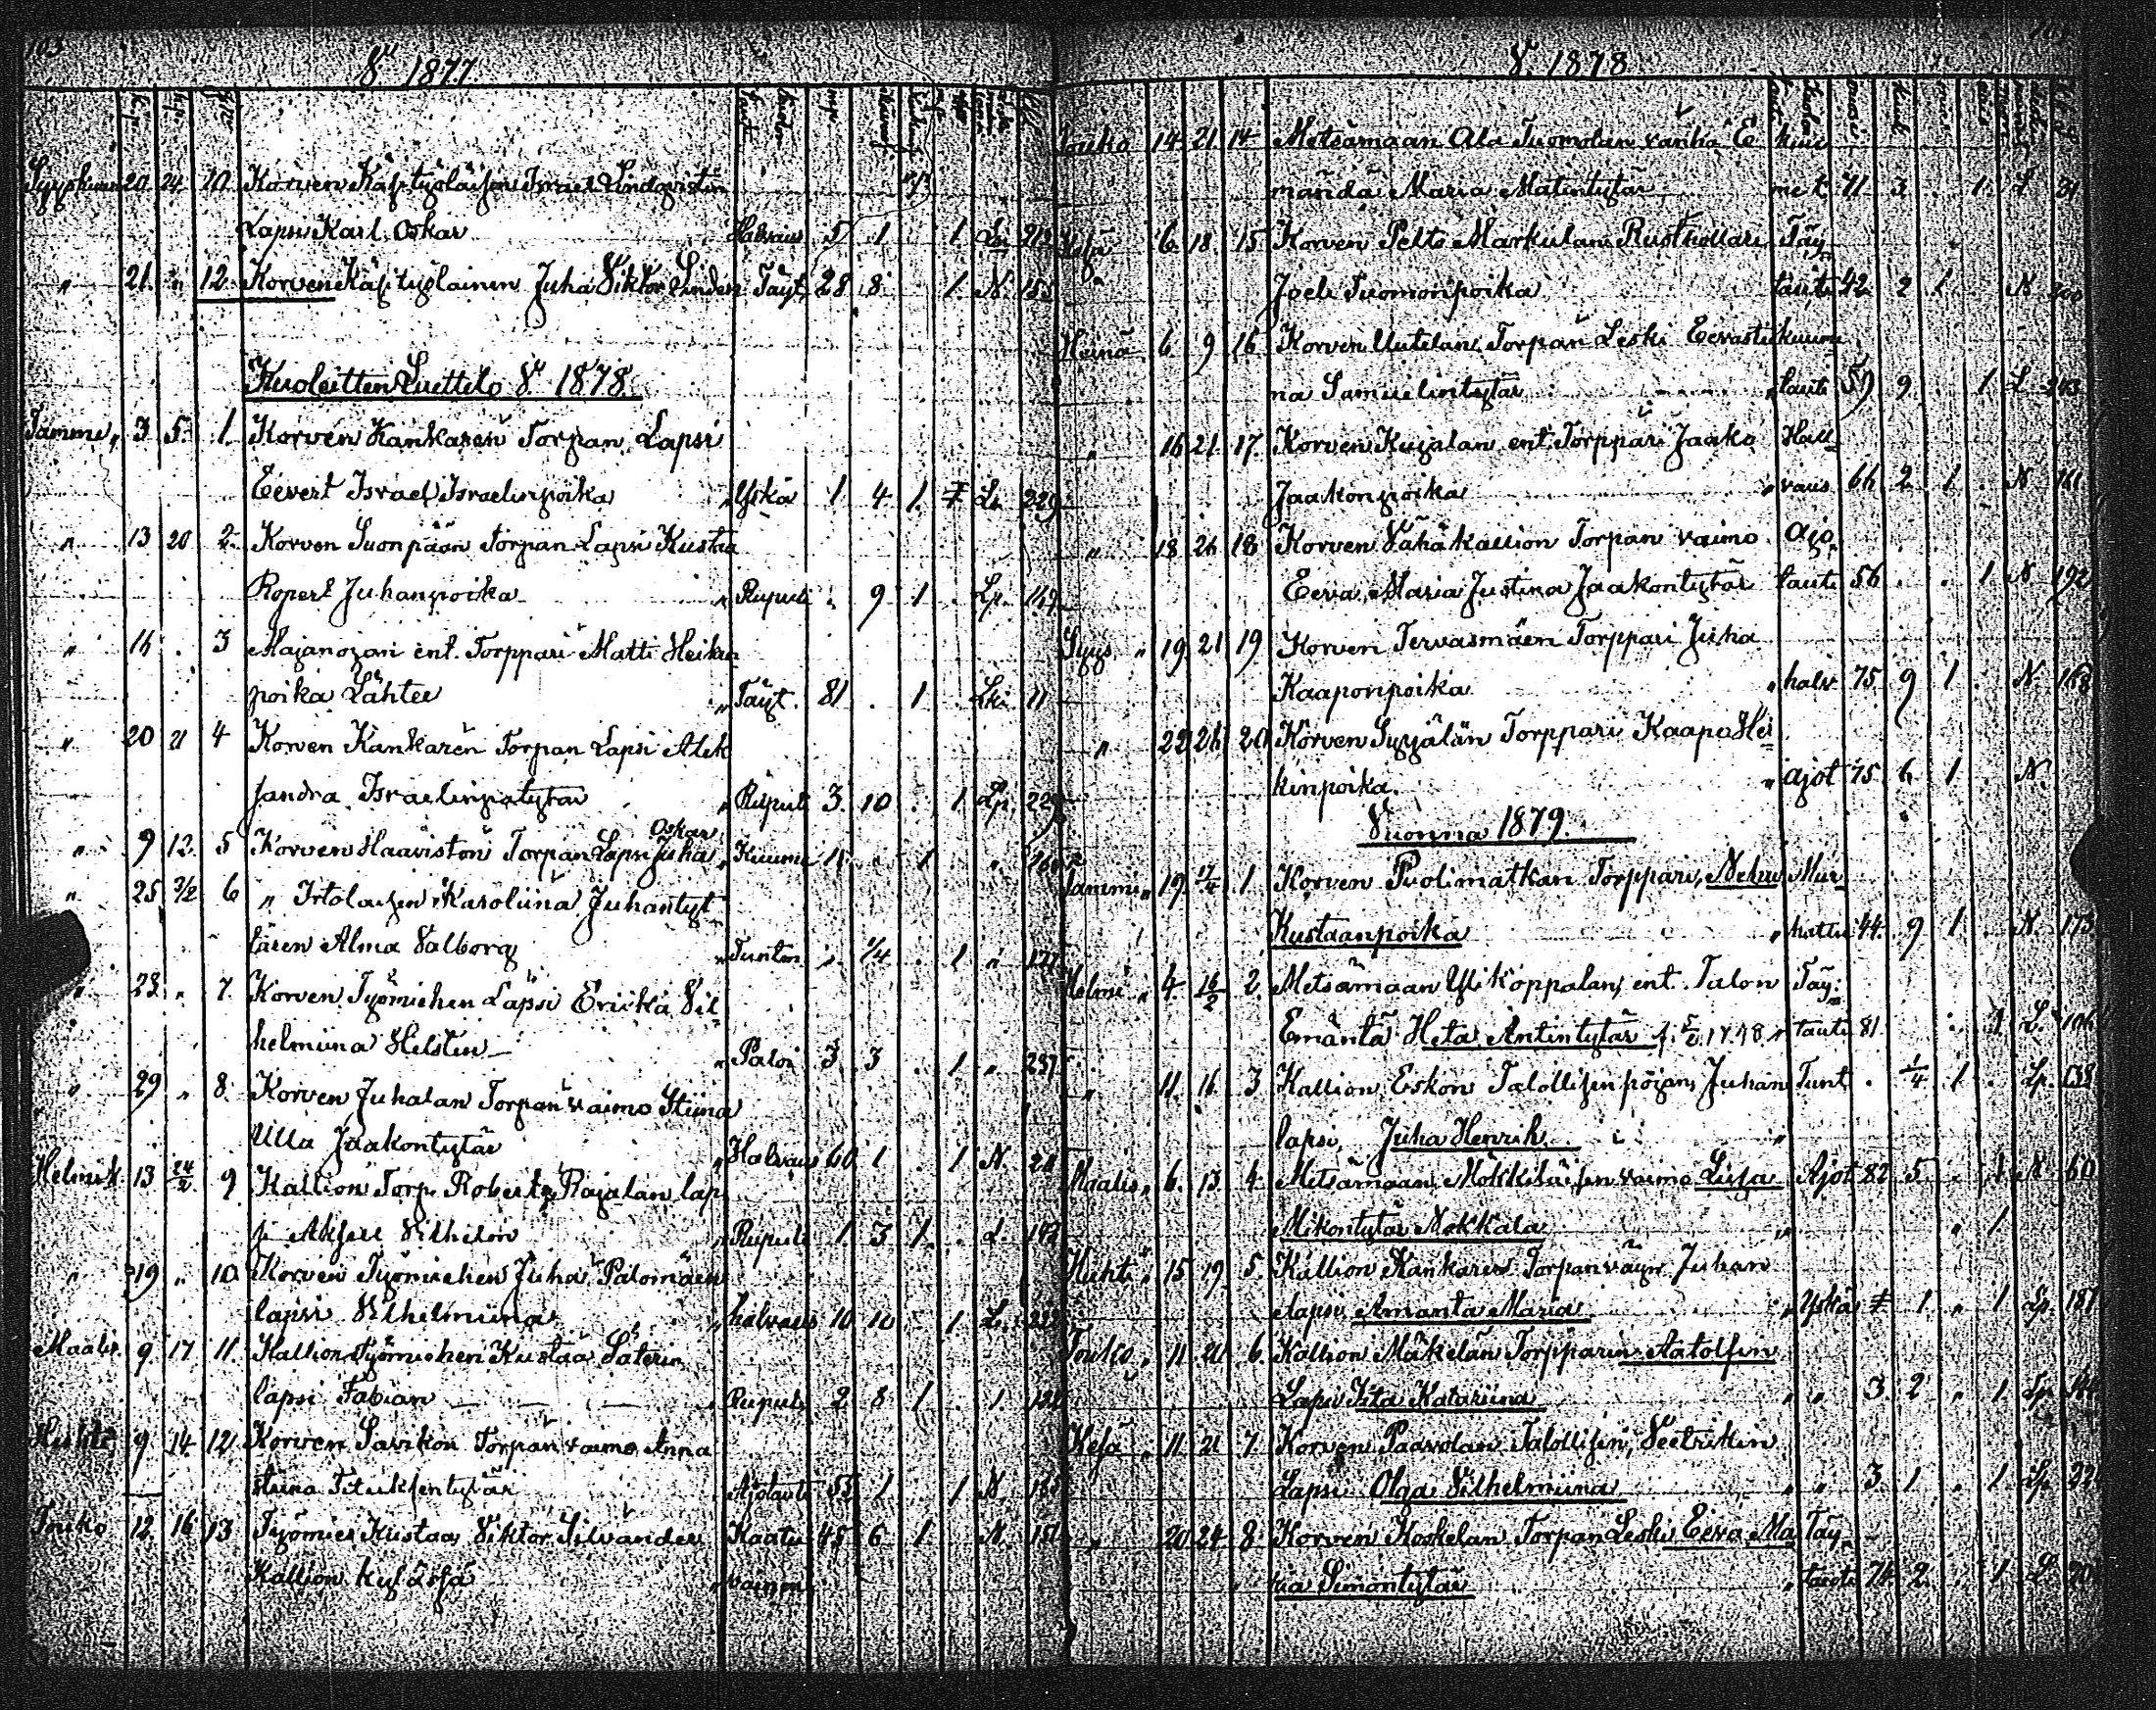 103
V 1877
Syyskuun 20. 24. 10. Korven Käsityöläisen Israel Lindqvistin
Lapsi Karl Oskar Halvaus 5 1 1 Ln 213
" 21. " 12. Korven Käsityöläinen Juha Viktor Linden Täyt. 28 8 1. N. 155
Kuoleitten Luettelo V 1878.
Tammi " 3 5. 1. Korven Kankaren Torpan Lapsi
Eevert Israel Israelinpoika " Yskä 1 4 1. Ln 229
" 13 20 2. Korven Suonpään Torpan Lapsi Kustaa
Ropert Juhanpoika " Rupuli . 9 1 . Lp. 149
" 14 . 3 Majanojan ent. Torppari Matti Heikin
poika Lähtee " Täyt. 81 . 1 Lki 11
" 20 21 4 Korven Kankaren Torpan Lapsi Alek
sandra Israelin tytär " Rupuli 3. 10 . 1 Lp. 229
Oskar
" 9 12. 5 Korven Haaviston Torpan Lapsi Juha " Kuume 11 . 1 "
" 25 3/2 6 " Irtolaisen Karoliina Juhantyt
tären Alma Valborg " Tunton " 1/4 . 1 " 177
" 23. " 7. Korven Työmiehen Lapsi Ericka Vil
helmiina Helsten " Paloi 3 3 . 1 " 237
" 29 " 8. Korven Juhalan Torpan vaimo Stiina
Ulla Jaakontytär " Halvaus 60 1 . 1 N.
Helmik. 13 24/2 9 Kallion Torp. Robert Rajalan lap
si Aksell Vilhelm " Rupuli 1. 3 1. . L.
" 19 " 10. Korven Työmiehen Juha Palomäen
lapsi Vilhelmiina " halvaus 10 10 . 1 L.
Maalis. 9. 17 11. Kallion Työmiehen Kustaa Säterin
lapsi Fabian " Rupuli 2 8 1 .
Huhti 9 14. 12. Korven Savikon Torpan vaimo Anna
Stiina Tituksentytär Ajotauti 55 1 1 N.
Touko 12. 16 13 Työmies Kustaa Viktor Silvander Kaatu 45 6 1. N.
Kallion kyläsjä " vainen
V. 1878
Touko 14. 21. 14 Metsämaan Ala Tuomolan vanha E kuu
mändä Maria Matintytär me t. 71 3 . 1. L 31
Kesä 6 18 15 Korven Pelto Markulan Rusthollari Täy
" Joeli Tuomonpoika tauti 42 2 1. N 200
Heinä 6 9 16 Korven Uutelan Torpan Leski Eevasti kuume
na Samuelintytär " tauti 57 9. 1 L 243
" 16 21. 17. Korven Kujalan ent. Torppari Jaako Hal
Jaakonpoika " vaus 64 2 1 . N 161
" 18 24 18 Korven Vähäkallion Torpan vaimo Ajo
Eeva Maria Justina Jaakontytär tauti 56 . . 1 N 192
Syys " 19 21 19 Korven Tervasmäen Torppari Juha
Kaaponpoika " halv 75 9 1 . N. 168
" 22 24 20 Korven Syyjälän Torppari Kaapo Hei
kinpoika. " ajot 75. 6 1 . N.
Vuonna 1879.
Tammi " 19. 17/4 1 Korven Puolimatkan Torppari,
Kustaanpoika " 44. 9 1 . N. 173
Helmi " 4. 16/2 2. Metsämaan Yli Köppalan ent. Talon Täy:
Emäntä Heta Antintytär s. 5/2 1798 " tauti 81 . . 1. L. 104
" 11. 16 3 Kallion Eskon Talollisen pojan, Juhan Tunt . 1/4 1 . Lp. 138
lapsi, Juha Henrik "
Maalis " 6. 13 4. Metsämaan Mökkiläisen vaimo Liisa Ajot 82 5 . 1 N 60
Mikontytär Nokkala " " 1
Huhti " 15 19 5. Kallion Kankaren Torpan väyn Juhan
lapsi Amanta Maria " Yskä 1 " 1 Lp.
Touko " 11. 21 6. Kallion Mäkelän Torpparin Aatolfin
Lapsi Ista Katariina " " 3. 2 " 1 Lp
Kesä " 11. 21 7. Korven Paavolan Talollisen, Veetrikin
Lapsi Olga Vilhelmiina " " 3. 1 . 1 Lp.
" 20 24 8. Korven Koskelan Torpan Leski Eeva Ma Täy
ria Simontytär " tauti 74 2. . 1. L